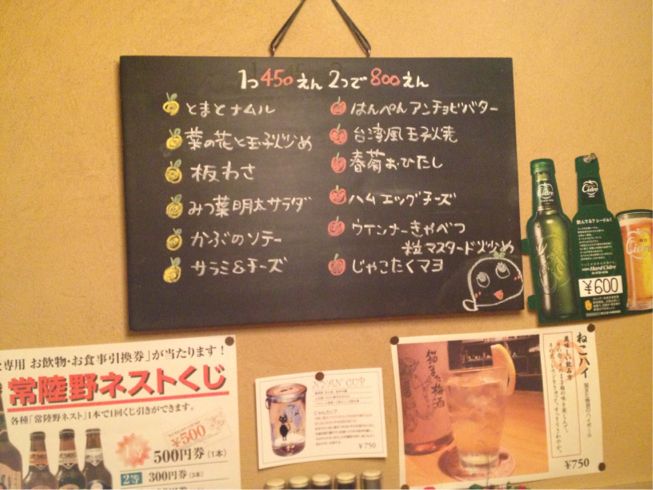 1つ450えん 2つで800えん
とまとナムル
菜の花と玉子炒め
板わさ
みつ葉明太サラダ
かぶのソテー
サラミ&チーズ
はんぺんアンチョビバター
台湾風玉子焼
春菊おひたし
ハムエッグチーズ
ウインナーきゃべつ
粒マスタード炒め
じゃこたくマヨ
Cidre
Hard Cidre
¥600
専用 お飲物・お食事引換券」が当たります!
常陸野ネストくじ
各種「常陸野ネスト」1本で1回くじ引きができます。
¥500
500円券(1本)
2等 300円券
CUP
¥750
ねこハイ
美味しい飲み方
梅酒
¥750